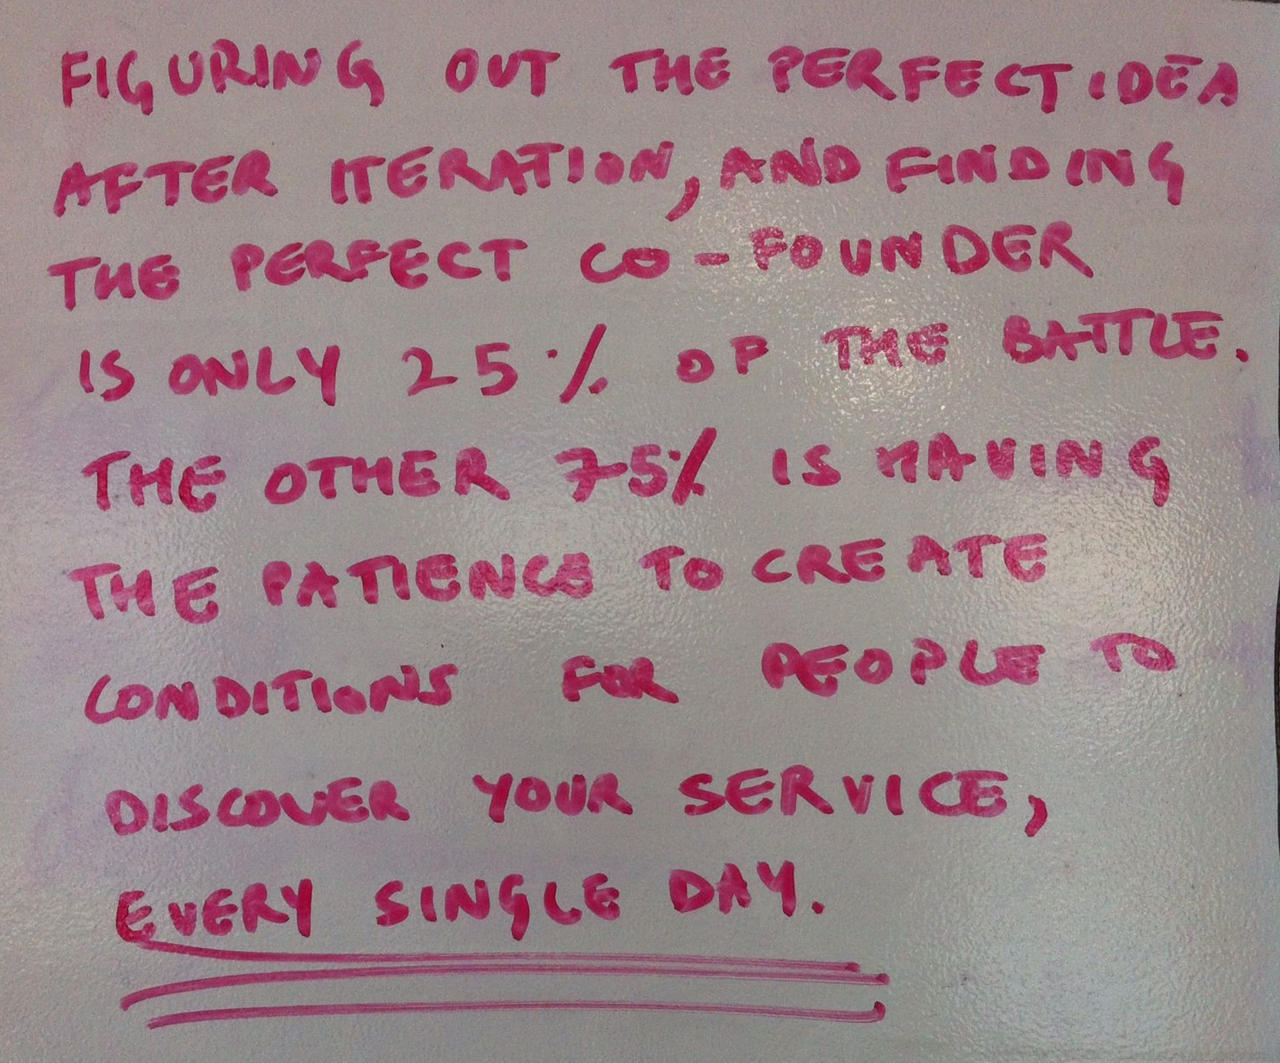 FIGURING OUT THE PERFECT IDEA
AFTER ITERATION, AND FINDING
THE PERFECT CO-FOUNDER
IS ONLY 25% OF THE BATTLE.
THE OTHER 75% IS HAVING
THE PATIENCE TO CREATE
CONDITIONS FOR PEOPLE TO
DISCOVER YOUR SERVICE,
EVERY SINGLE DAY.